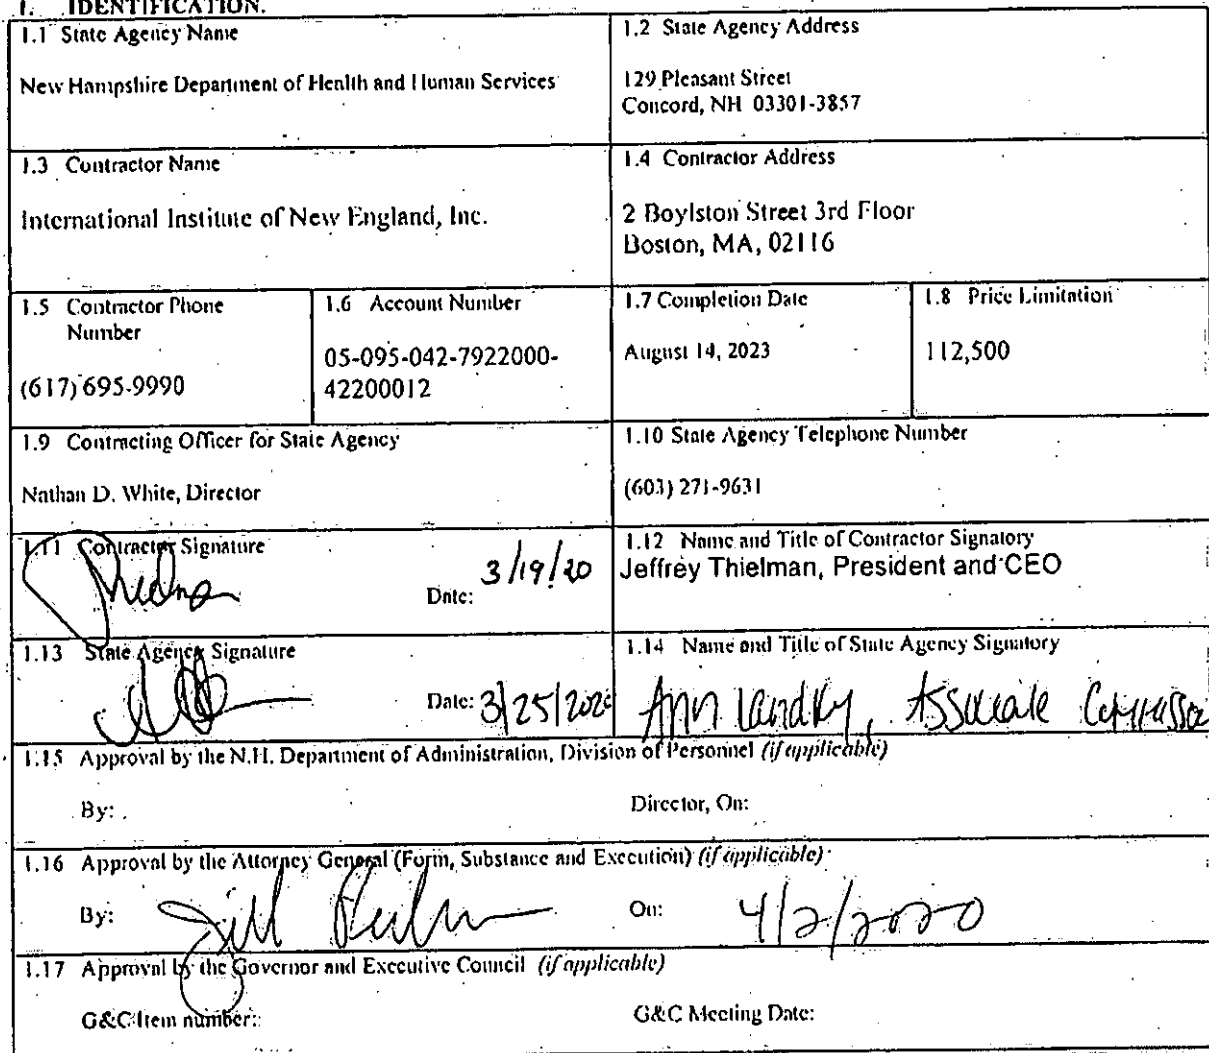 1. IDENTIFICATION.
1.1 State Agency Name
New Hampshire Department of Health and Human Services
1.2 State Agency Address
129 Pleasant Street
Concord, NH 03301-3857
1.3 Contractor Name
International Institute of New England, Inc.
1.4 Contractor Address
2 Boylston Street 3rd Floor
Boston, MA, 02116
1.5 Contractor Phone
Number
(617) 695-9990
1.6 Account Number
05-095-042-7922000-
42200012
1.7 Completion Date
August 14, 2023
1.8 Price Limitation
112,500
1.9 Contracting Officer for State Agency
Nathan D. White, Director
1.10 State Agency Telephone Number
(603) 271-9631
1.11 Contractor Signature
Date: 3/19/20
1.12 Name and Title of Contractor Signatory
Jeffrey Thielman, President and CEO
1.13 State Agency Signature
Date: 3/25/2020
1.14 Name and Title of State Agency Signatory
Ann Landry, Associate
1.15 Approval by the N.H. Department of Administration, Division of Personnel (if applicable)
By:
Director, On:
1.16 Approval by the Attorney General (Form, Substance and Execution) (if applicable)
By:
On: 4/2/2020
1.17 Approval by the Governor and Executive Council (if applicable)
G&C Item number:
G&C Meeting Date: